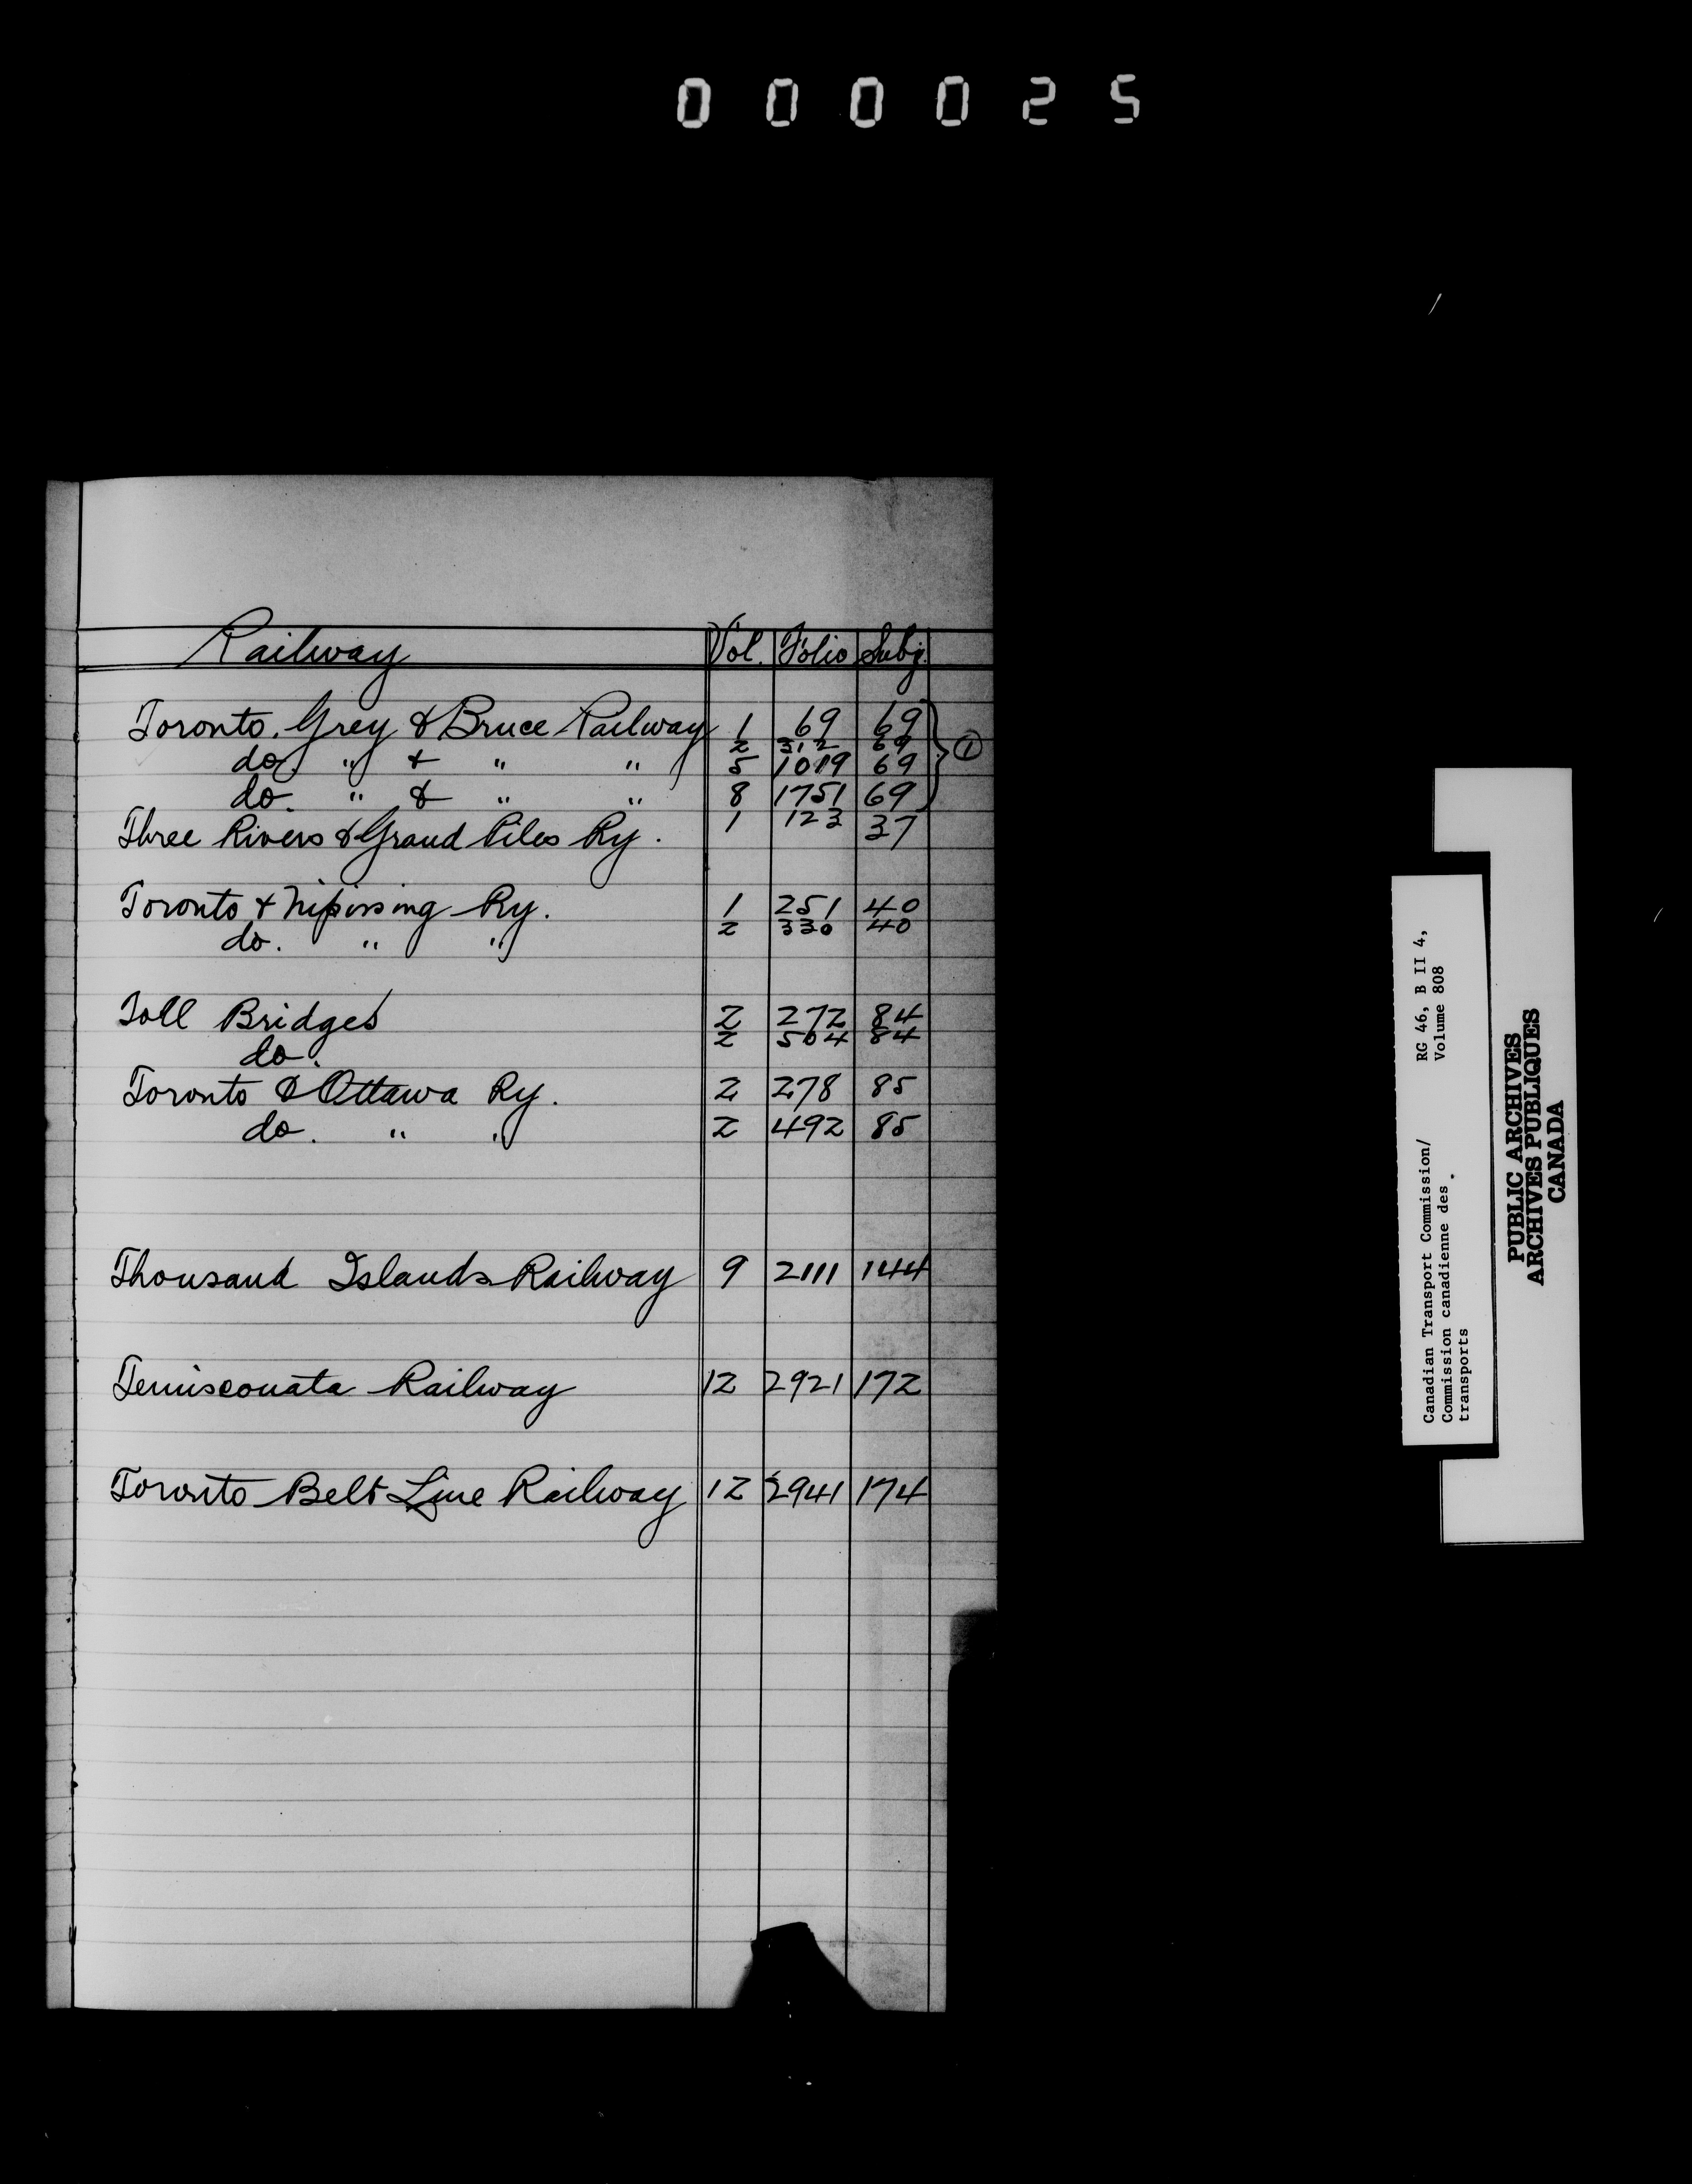 000025
Railway Vol. Folio Subj.
Toronto, Grey & Bruce Railway 1 69 69
2 312 69
do. " & " " 5 1019 69 ①
do. " & " " 8 1751 69
Three Rivers & Grand Piles Ry. 1 123 37
Toronto & Nipissing Ry. 1 251 40
do. " " 2 330 40
Toll Bridges 2 272 84
do. 2 504 84
Toronto & Ottawa Ry. 2 278 85
do. " " 2 492 85
Thousand Islands Railway 9 2111 144
Temisconata Railway 12 2921 172
Toronto Belt Line Railway 12 2941 174
Canadian Transport Commission/ RG 46, B II 4,
Commission canadienne des Volume 808
transports
PUBLIC ARCHIVES
ARCHIVES PUBLIQUES
CANADA